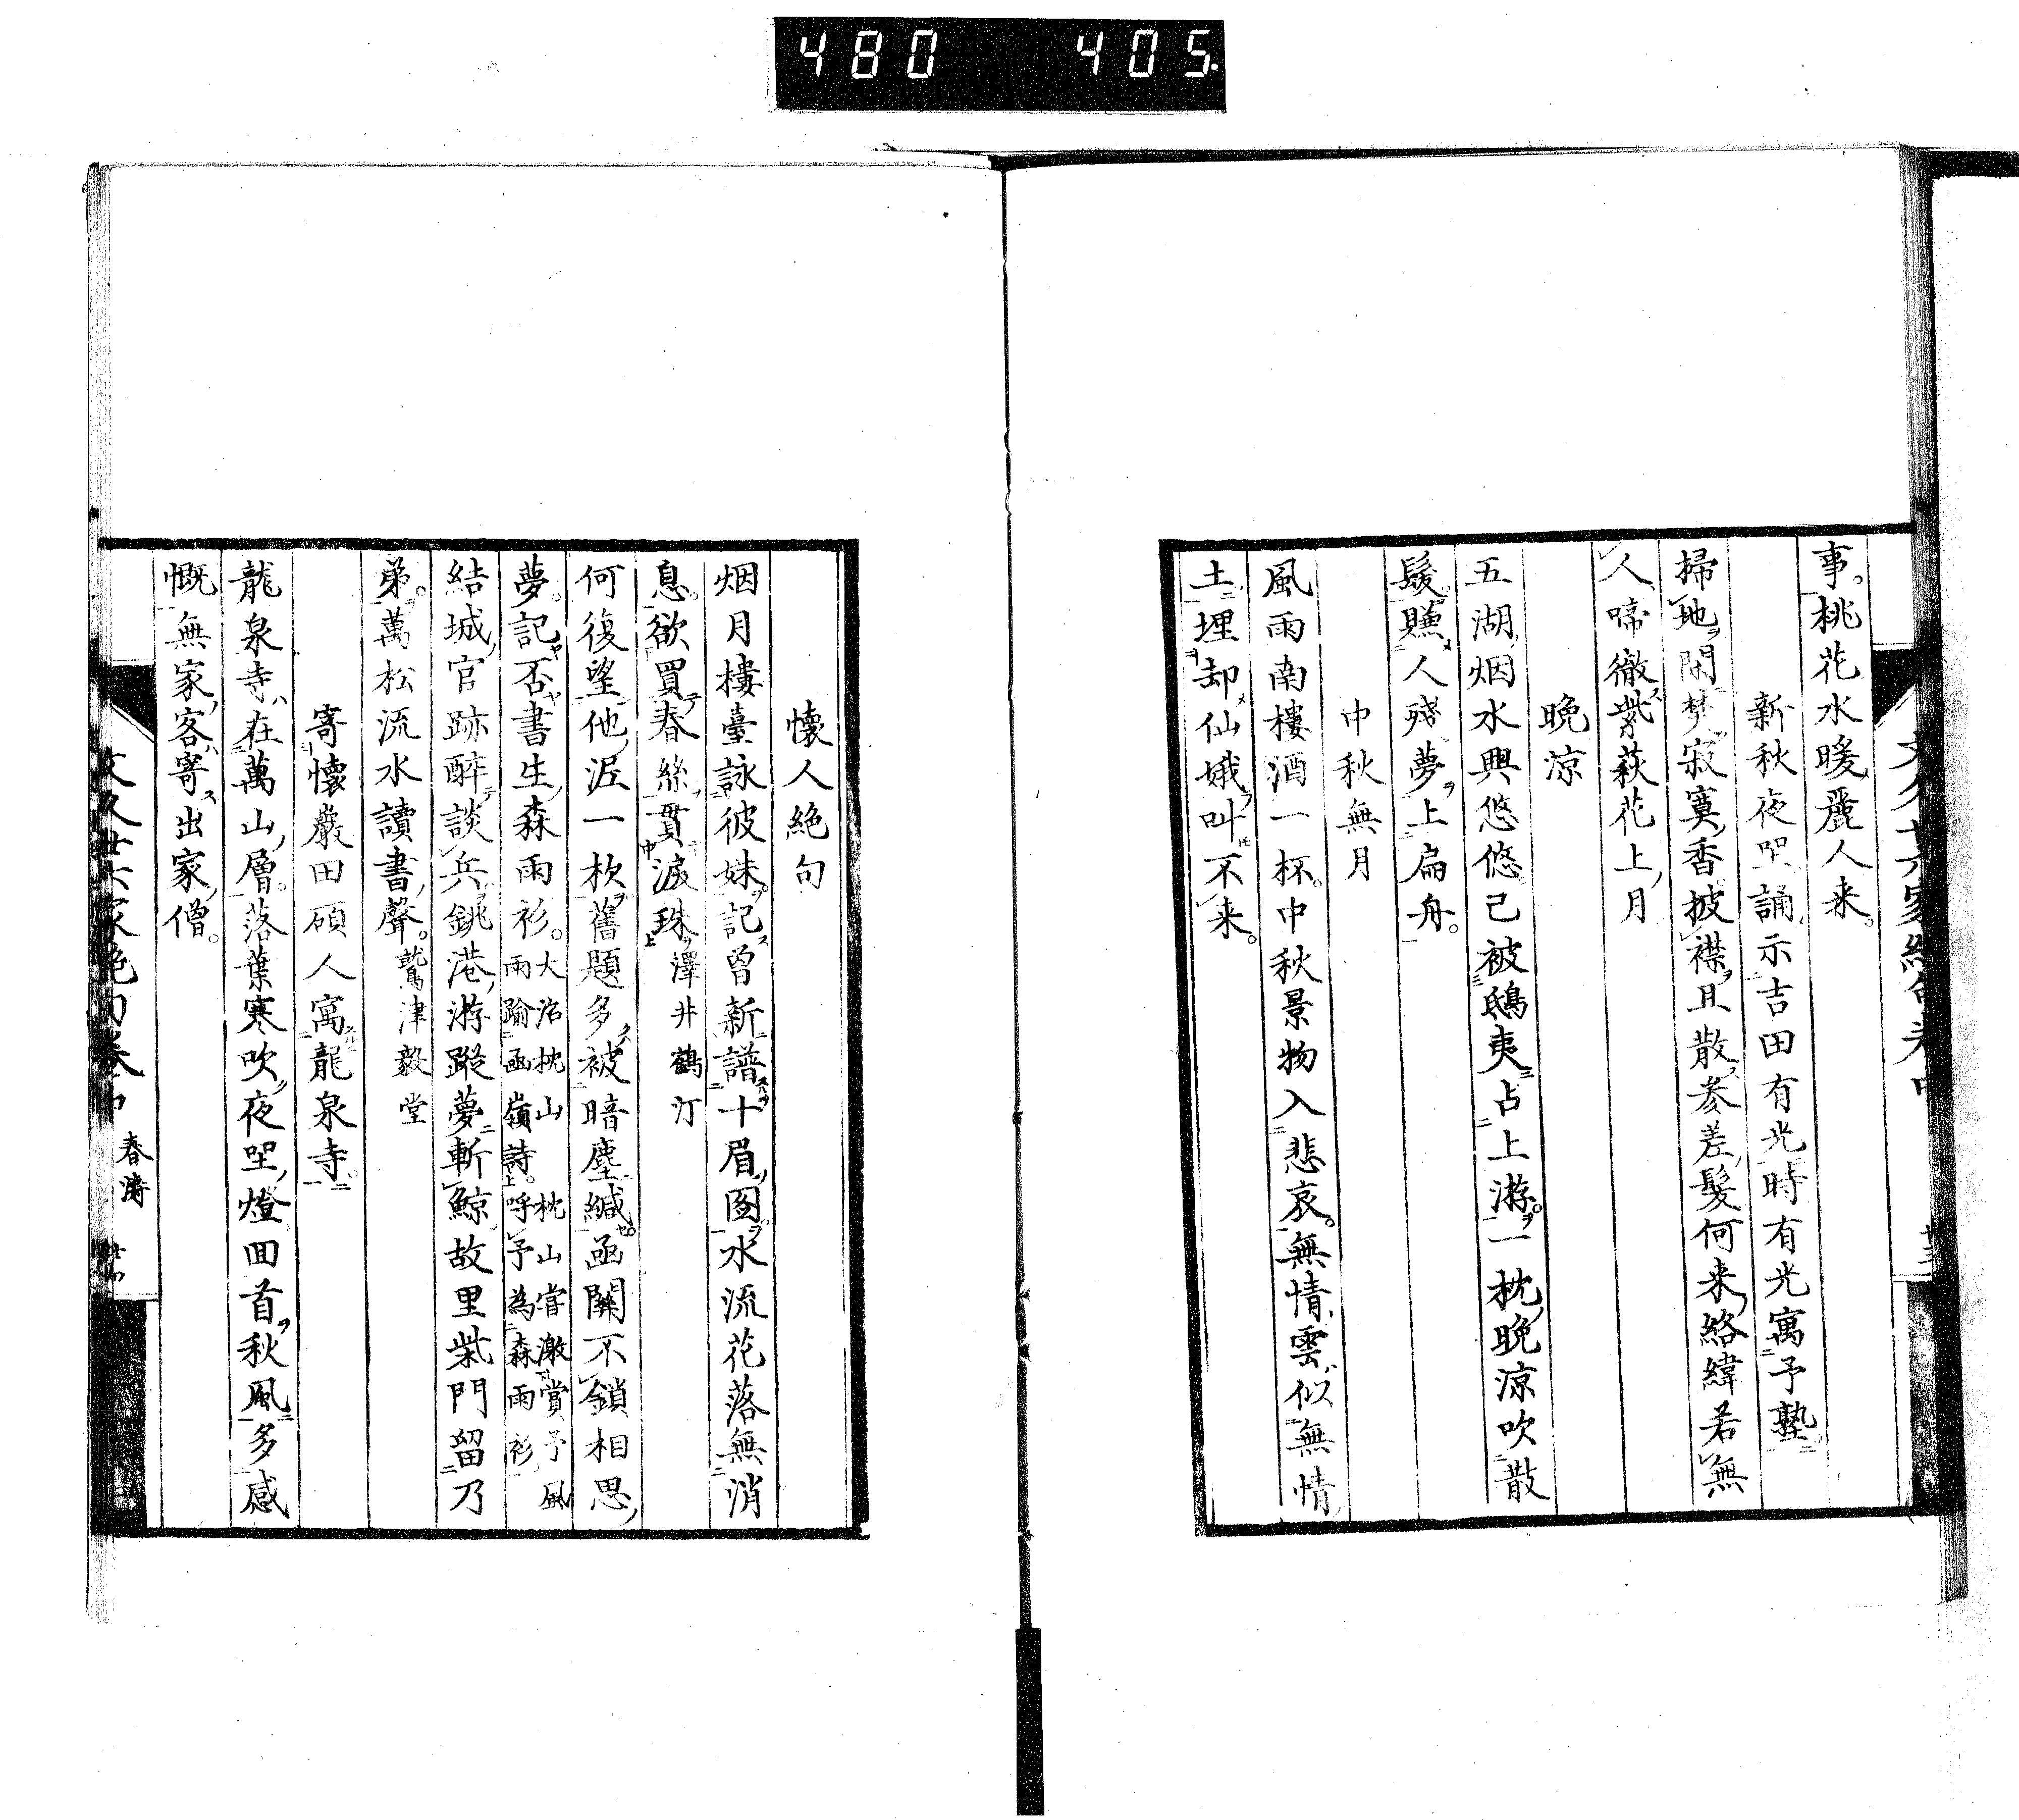 480 405.
事桃花水暖麗人来
新秋夜坐誦示吉田有光時有光寓予塾
掃地閑焚寂寞香披襟且散參差髮何来絡緯若無
人啼徹紫萩花上月
晩涼
五湖烟水興悠悠已被鴟夷占上游一枕晩涼吹散
髮賺人殘夢上扁舟
中秋無月
風雨南樓酒一杯中秋景物入悲哀無情雲似無情
土埋却仙娥叫不来
懷人絶句
烟月樓臺詠彼姝記曾新譜十眉圖水流花落無消
息欲買春絲貫淚珠澤井鶴汀
何復望他泥一杴舊題多被暗塵緘函關不鎖相思
夢記否書生森雨衫大沼枕山枕山嘗激賞予風
雨踰函嶺詩呼予為森雨衫
結城官跡醉談兵銚港游蹤夢斬鯨故里柴門留乃
弟萬松流水讀書聲鷲津毅堂
寄懷巖田碩人寓龍泉寺
龍泉寺在萬山層落葉寒吹夜坐燈回首秋風多感
慨無家客寄出家僧
文久廿六家絶句卷中 春濤